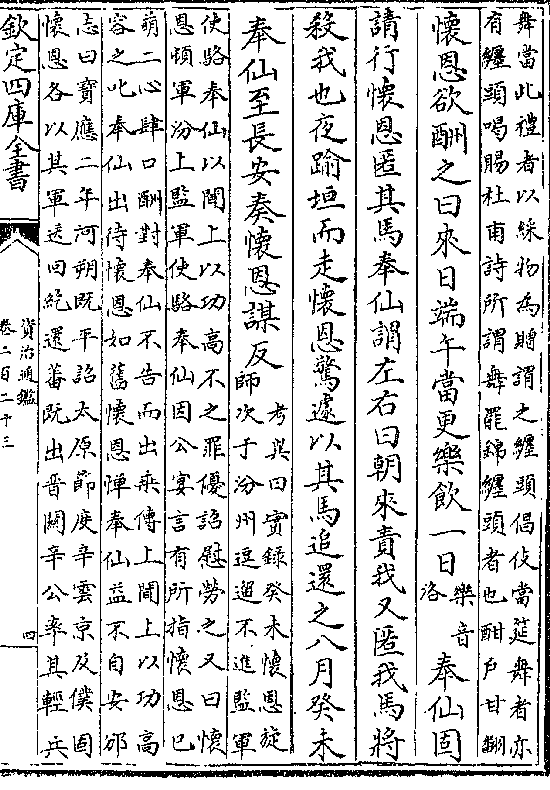 舞當此禮者以綵物為贈謂之纏頭倡伎當筵舞者亦
有纏頭喝賜杜甫詩所謂舞罷錦纏頭者也酣戶甘翻
懷恩欲酬之曰來日端午當更樂飲一日樂音
洛奉仙固
請行懷恩匿其馬奉仙謂左右曰朝來責我又匿我馬將
殺我也夜踰垣而走懷恩驚遽以其馬追還之八月癸未
奉仙至長安奏懷恩謀反考異曰實録癸未懷恩旋
師次于汾州逗遛不進監軍
使駱奉仙以聞上以功高不之罪優詔慰勞之又曰懷
恩頓軍汾上監軍使駱奉仙因公宴言有所指懷恩已
萌二心肆口酬對奉仙不告而出乘傳上聞上以功高
容之叱奉仙出待懷恩如舊懷恩憚奉仙益不自安邠
志曰寶應二年河朔既平詔太原節度辛雲京及僕固
懷恩各以其軍送回紇還蕃既出晉關辛公率其輕兵
欽定四庫全書
資治通鑑
卷二百二十三
四